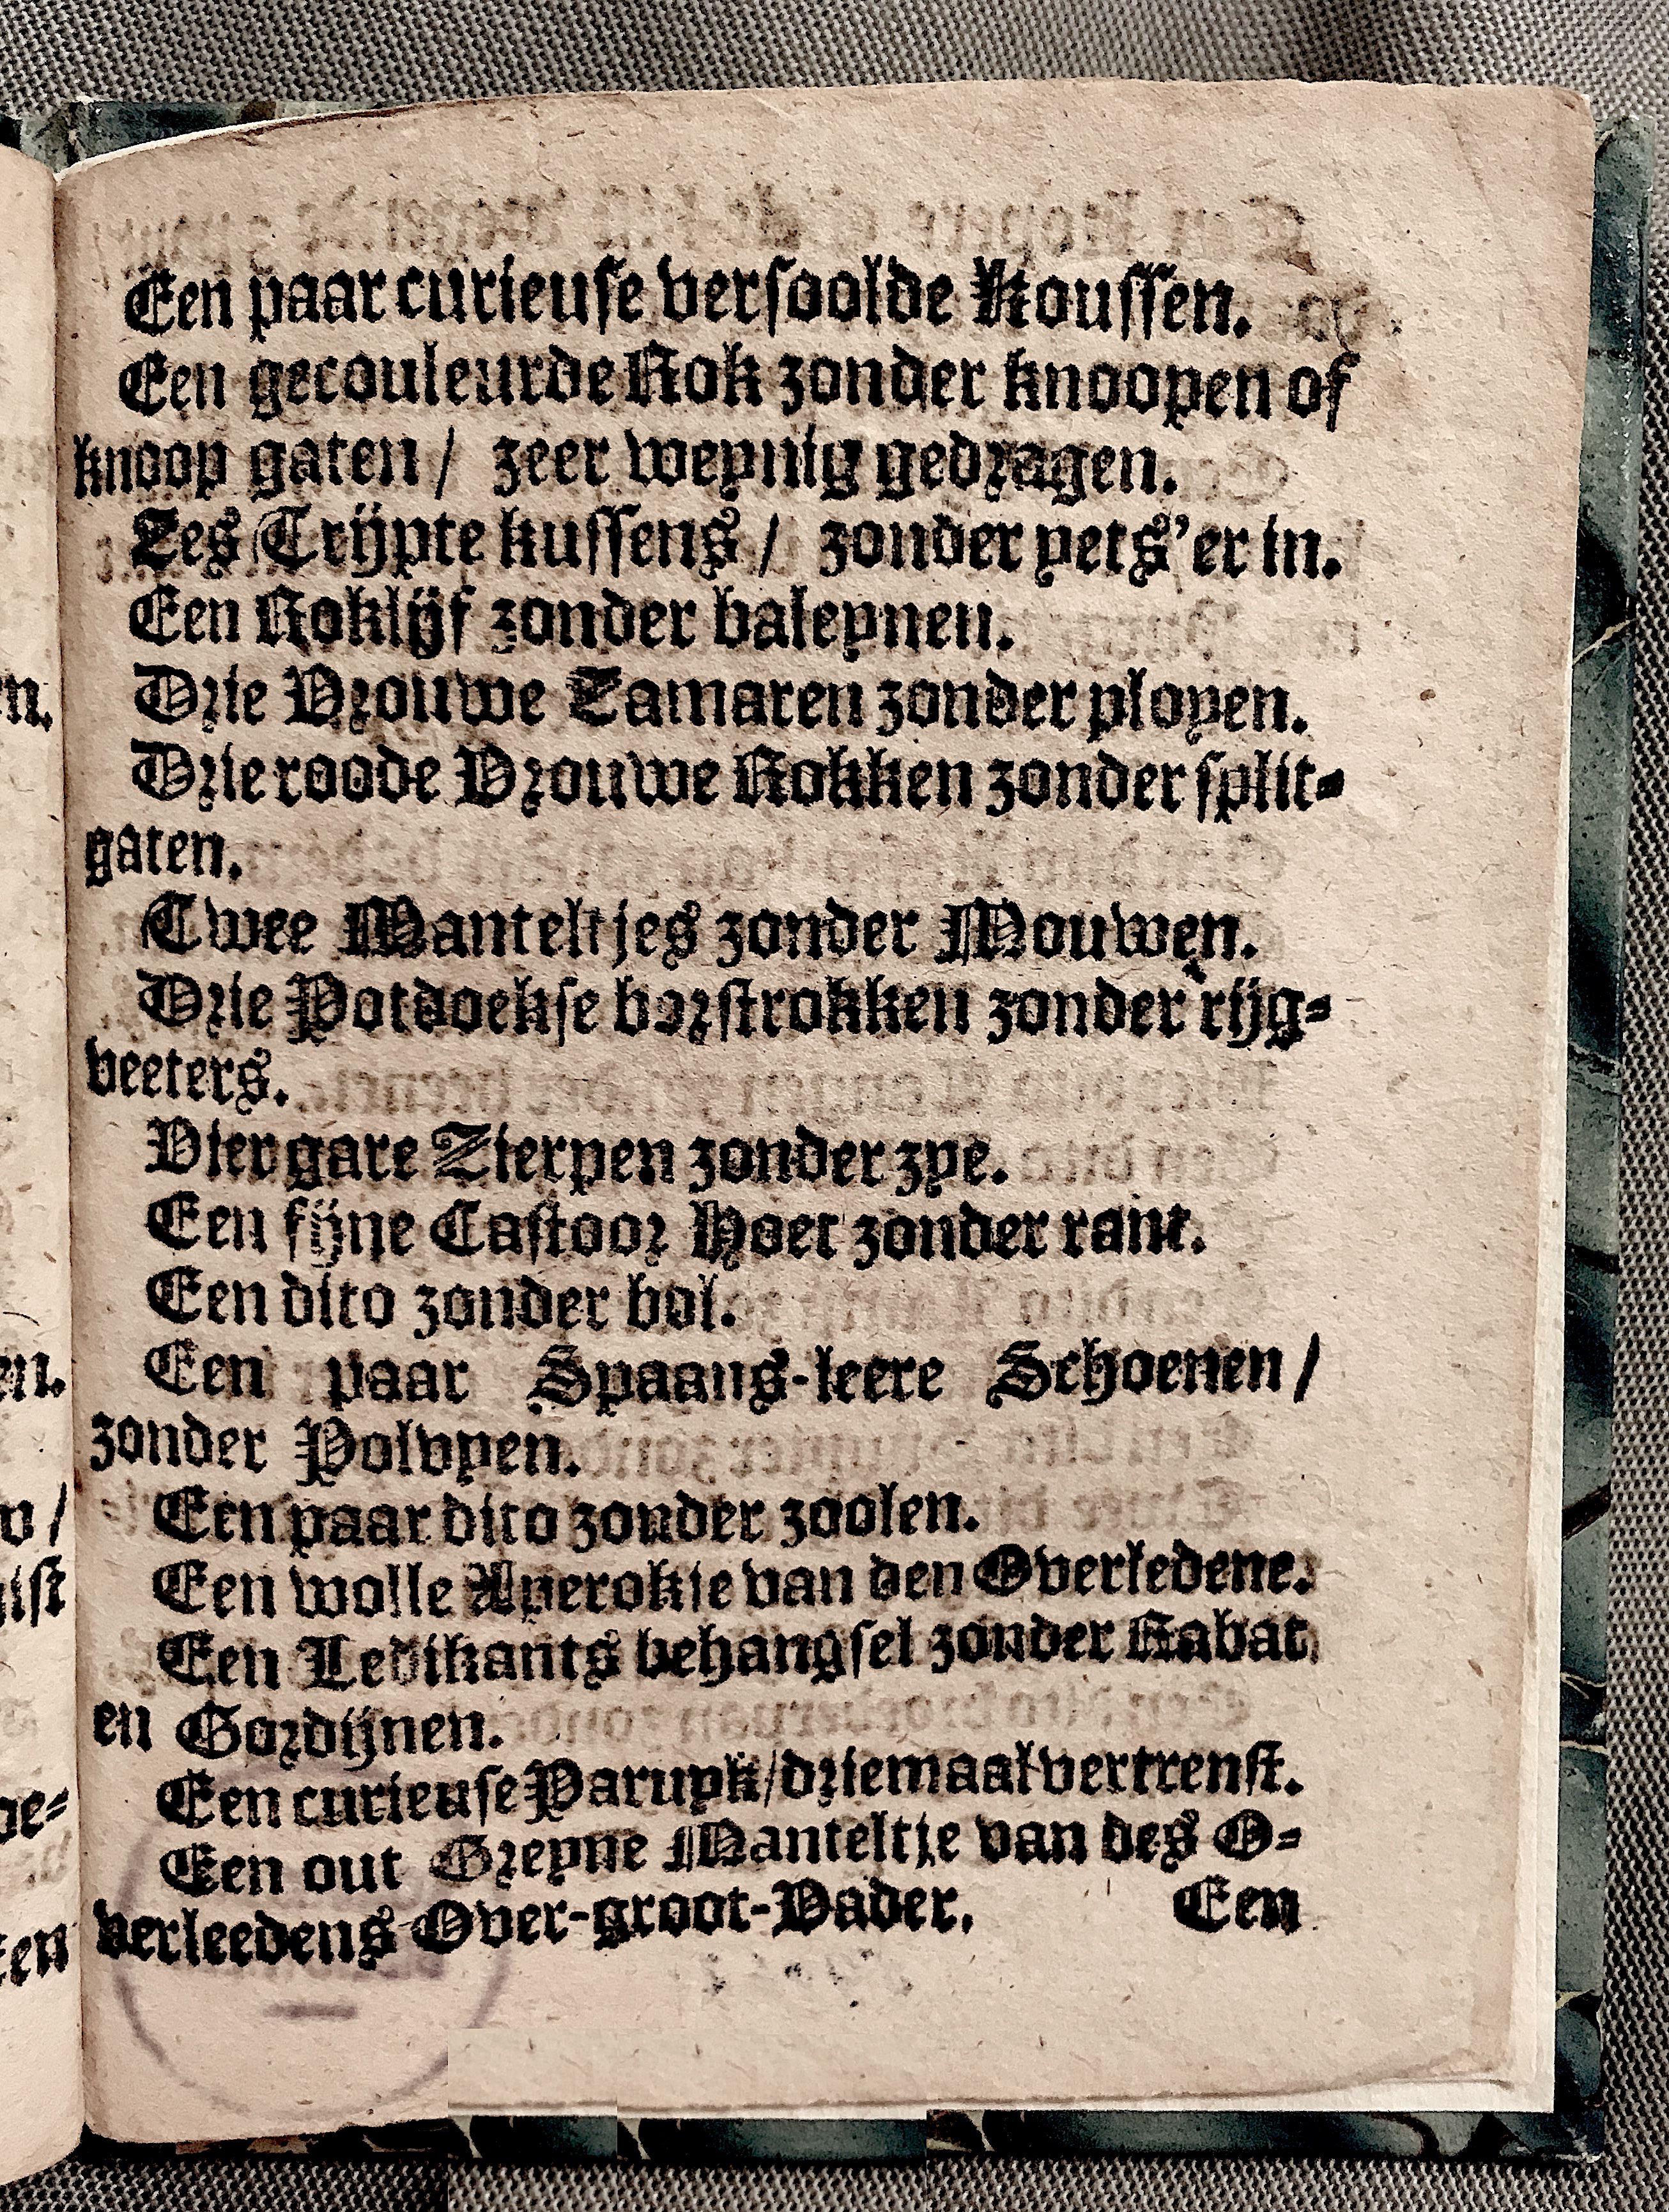 Een paar curieuse versoolde Koussen.
Een gecouleurde Rok zonder knoopen of
knoop gaten / zeer weynig gedragen.
Zes Trijpte kussens / zonder yets'er in.
Een Roklijf zonder baleynen.
Drie Vrouwe Tamaren zonder ployen.
Drie roode Vrouwe Rokken zonder split-
gaten.
Twee Manteltjes zonder Mouwen.
Drie Potdoekse borstrokken zonder rijg-
veeters.
Vier gare Zierpen zonder zye.
Een fijne Castoor Hoet zonder rant.
Een dito zonder bol.
Een paar Spaans-leere Schoenen /
zonder Polvyen.
Een paar dito zonder zoolen.
Een wolle Aperokje van den Overledene.
Een Ledikants behangsel zonder Rabat
en Gordijnen.
Een curieuse Paruyk / driemaal vertrenst.
Een out Greyne Manteltje van des O-
verleedens Over-groot-Vader. Een